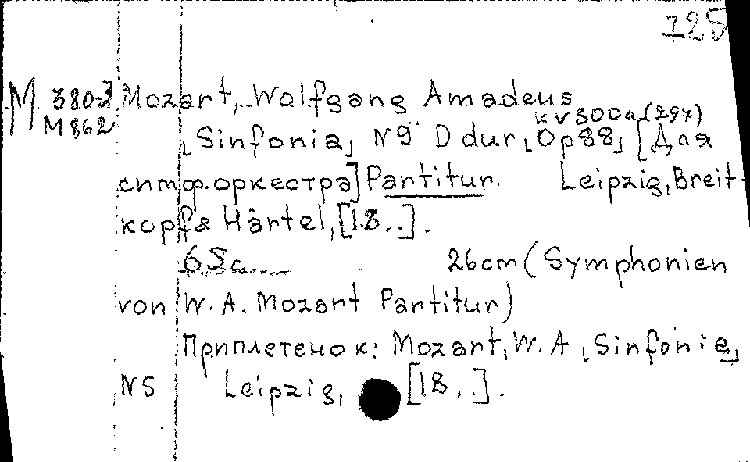 725
M 3803 Mozart, Wolfgang Amadeus
M862 KV300a (297)
[Sinfonia] N9 D dur, Op 88, [Для
симф.оркестра] Partitur. Leipzig, Breit-
kopf & Härtel, [18..].
65 с. 26cm (Symphonien
von W. A. Mozart Partitur)
Приплетено к: Mozart, W. A, [Sinfonie]
N5 Leipzig, [18..].